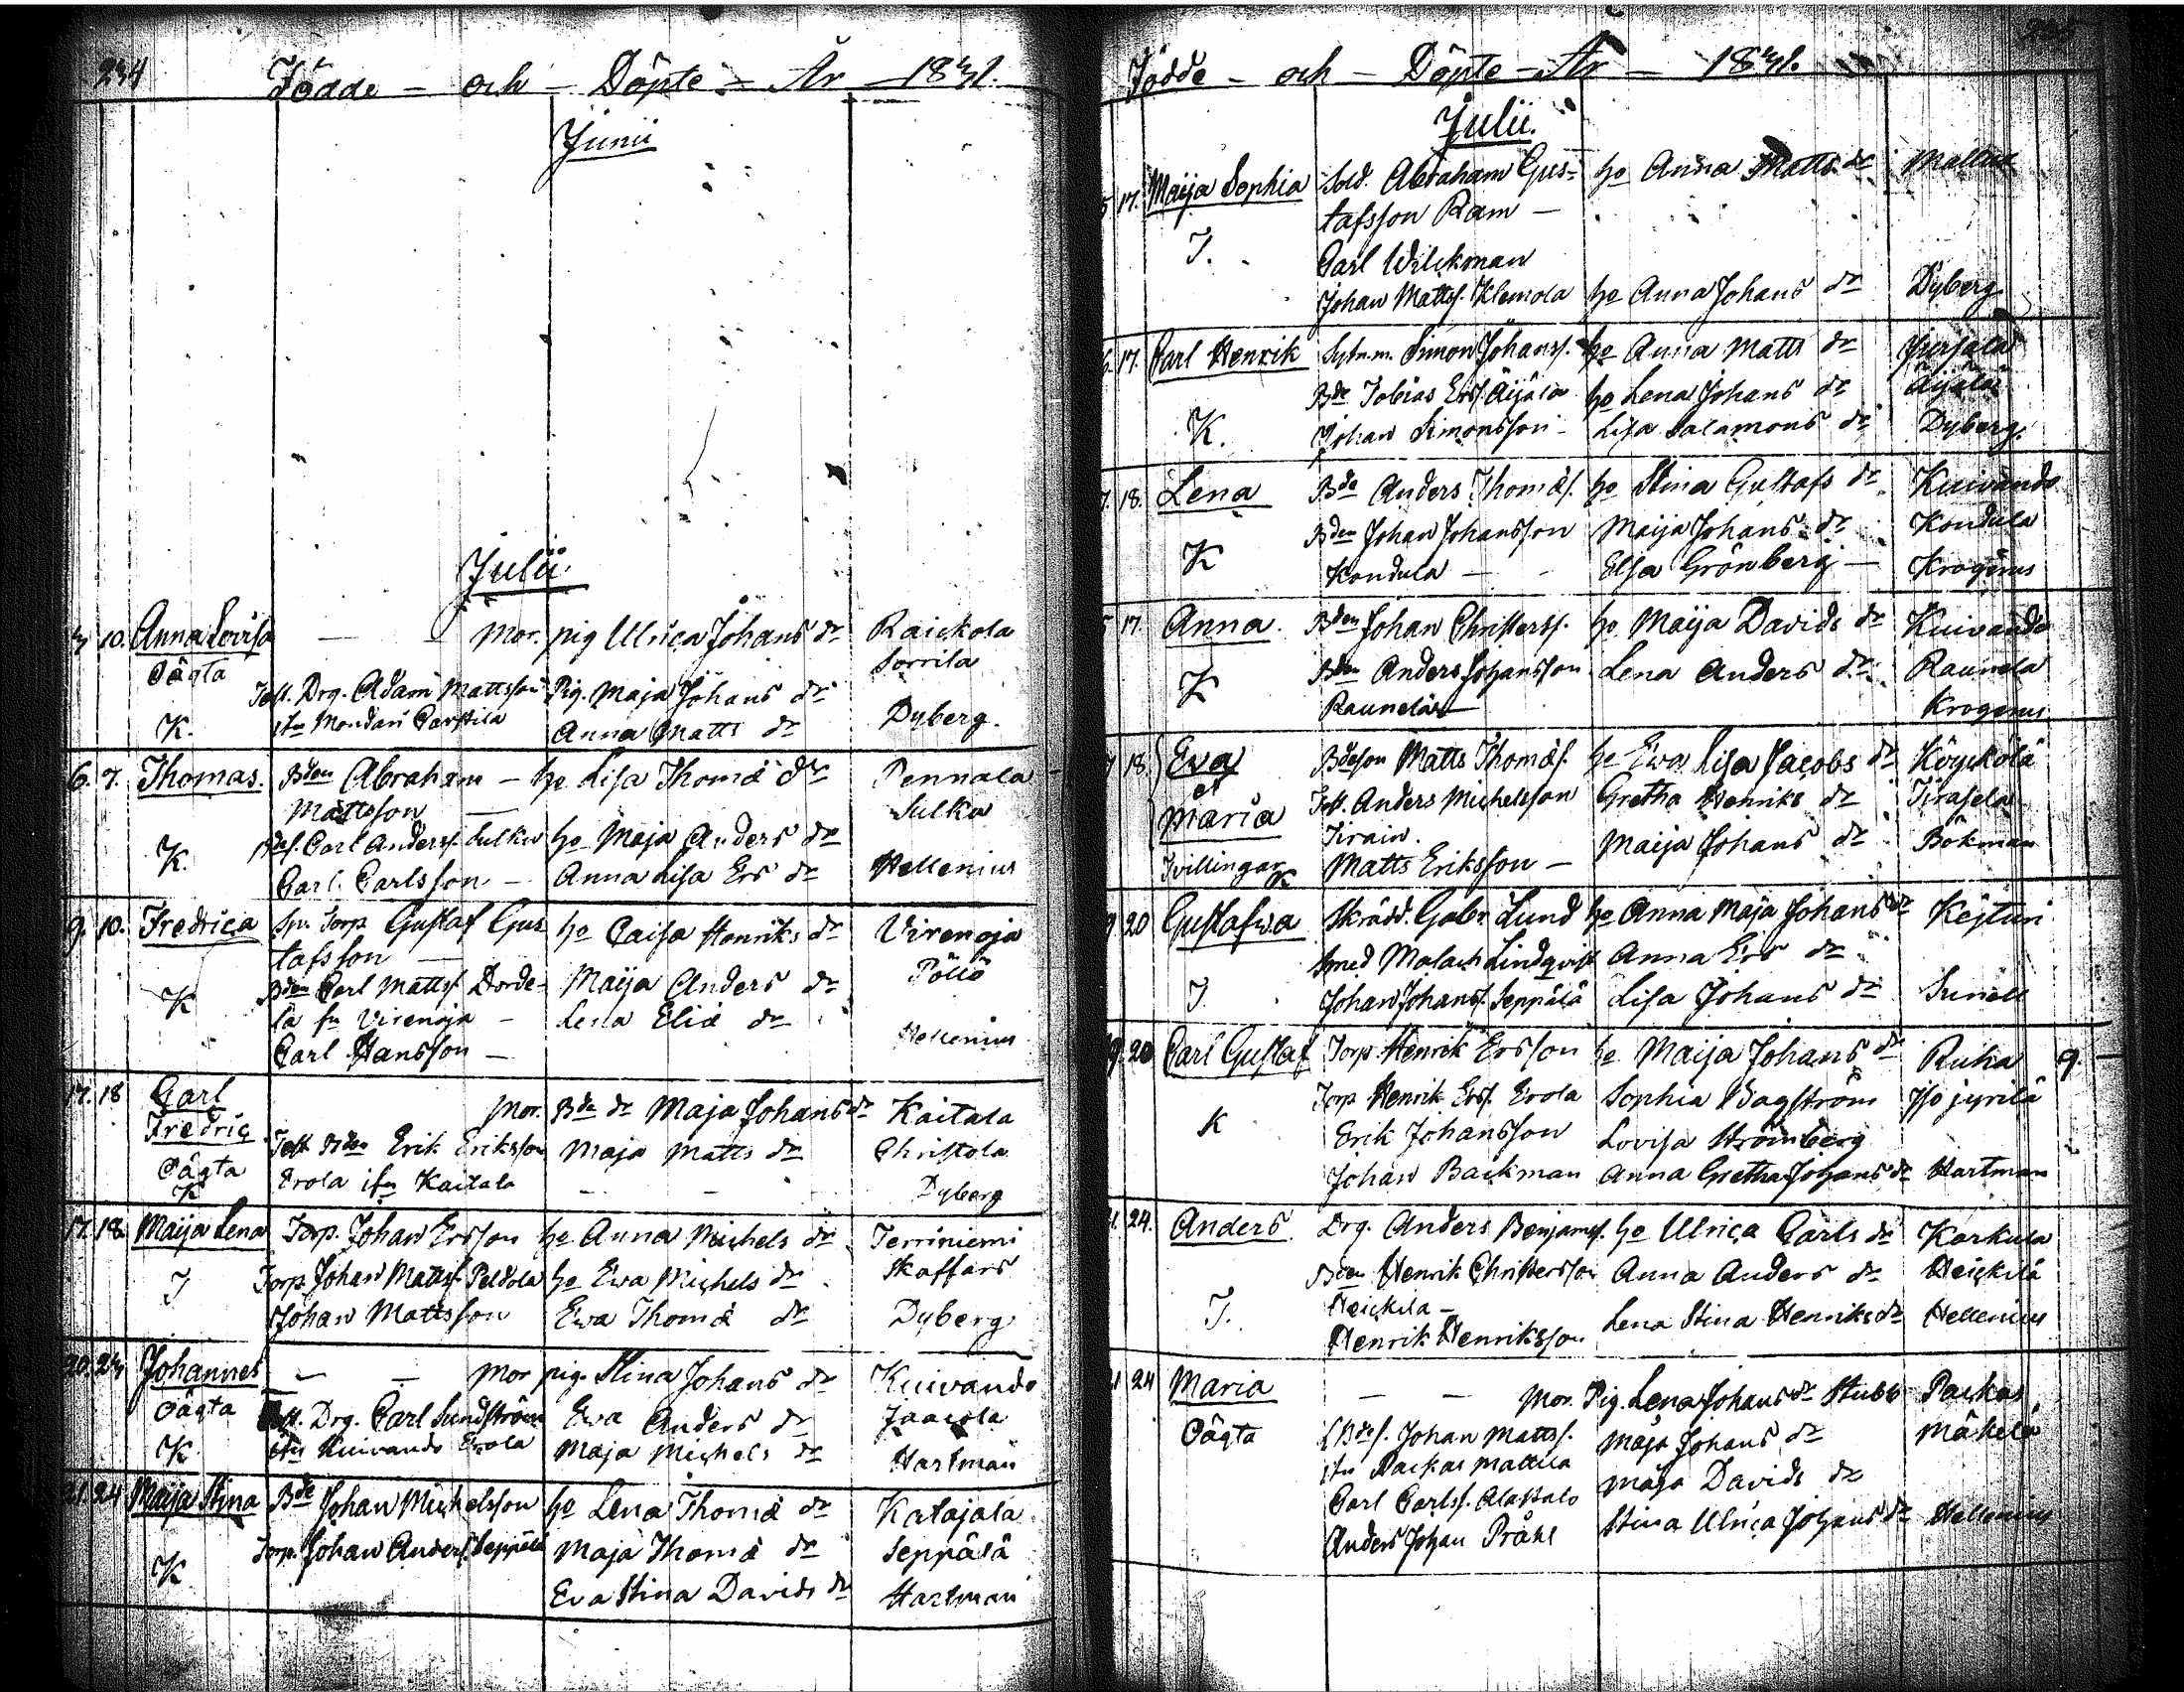 234
Födde - och - Döpte - År - 1841.
Junii
Julii
4 10. Anna Lovisa — mor. pig Ulrica Johans dr Raickola
Oägta Sorrila
Test. Drg. Adam Mattsson Pig. Maja Johans dr
K. Anna Matts dr Dyberg.
6. 7. Thomas. Bden Abraham — ho Lisa Thomæ dr Pennala
Mattsson — Sulku
K. Bdes. Carl Anderss. Sulku ho Maja Anders dr
Carl Carlsson — Anna Lisa Ers dr Hellenius
9. 10. Fredrica Torp Gustaf Gus- ho Caisa Henriks dr Virenoja
tafsson —
K Bden Carl Mattss. Dorde- Maija Anders dr Pöllö
la fn Virenoja — Lena Eliæ dr
Carl Hansson — Hellenius
17. 18 Carl mor. Bde dr Maja Johans dr Kaitala
Fredric Test Bden Erik Eriksson Maja Matts dr Christola
Oägta Erola ifn Kaitala - -
K Dyberg
17. 18. Maija Lena Torp. Johan Ersson ho Anna Michels dr Terriniemi
I Torp Johan Mattss. Peldola ho Ewa Michels dr Skaffars
Johan Mattsson Ewa Thomæ dr Dyberg
20. 24 Johannes — — mor pig. Stina Johans dr Kuivando
Oägta Test. Drg. Carl Sundström Ewa Anders dr Jaacola
K. ifn Kuivando Erola Maja Michels dr Hartman
21. 24 Maija Stina Bde Johan Michelsson ho Lena Thomæ dr Katajala
Torp. Johan Anderss. Seppälä Maja Thomæ dr Seppälä
K Eva Stina Davids dr Hartman
Födde - och - Döpte - År - 1841.
Julii.
17. Maija Sophia Sold. Abraham Gus- ho Anna Matts dr
tafsson Ram —
I. Carl Wilckman
Johan Mattss. Klemola ho Anna Johans dr Dyberg
17. Carl Henrik Sytn.m. Simon Johanss. ho Anna Matts dr
Bde Tobias Ers. Äijälä ho Lena Johans dr Äijälä
K. Johan Simonsson - Lisa Salamons dr Dyberg.
18. Lena Bde Anders Thomæs. ho Stina Gustafs dr Kuivando
Bden Johan Johansson Maija Johans dr Kondula
K Kondula — Elsa Grönberg — Krogerus
17. Anna. Bden Johan Christerss. ho Maija Davids dr Kuivando
K Bden Anders Johansson Lena Anders dr. Raunela
Raunela — Krogerus
18. Eva Bdeson Matts Thomæs. ho Ewa Lisa Jacobs dr Köyckölä
et Test. Anders Michelsson Gretha Henriks dr
Maria Maija Johans dr Bökman
Tvillingar K Matts Eriksson —
20 Gustafwa Skrädd. Gabr. Lund ho Anna Maja Johans dr Kejturi
Smed Malach Lindqvist Anna Ers dr
I. Johan Johanss. Seppälä Lisa Johans dr Sunell
20 Carl Gustaf Torp Henrik Ersson ho Maija Johans dr Ruha 9.
Torp Henrik Erss. Erola Sophia Bagström Iso jyrilä
K Erik Johansson Lovisa Strömberg
Johan Backman Anna Gretha Johans dr Hartman
24. Anders. Drg. Anders Benjamss. ho Ulrica Carls dr Karkula
Bden Henrik Christersson Anna Anders dr Heickilä
I. Heickilä —
Henrik Henriksson Lena Stina Henriks dr Hellenius
24 Maria — — mor. Pig. Lena Johans dr Stubb Packas
Oägta Bdes. Johan Mattss. Maja Johans dr Mäkelä
ifn Packas Mattila Maja Davids dr
Carl Carlss. Alastalo
Anders Johan Pråhl Stina Ulrica Johans dr Hellenius